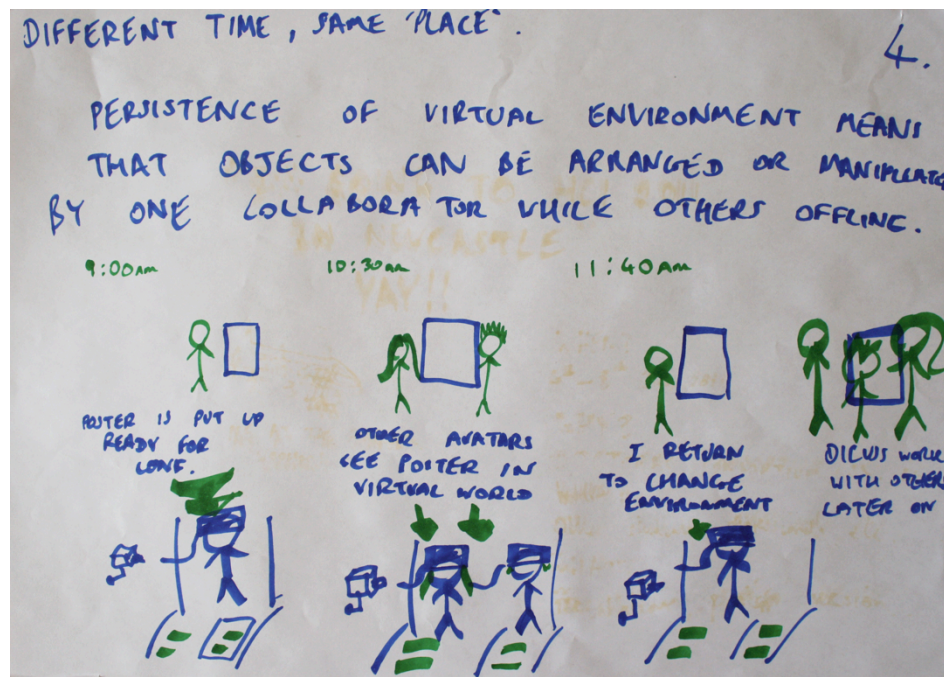 DIFFERENT TIME, SAME 'PLACE'.
4.
PERSISTENCE OF VIRTUAL ENVIRONMENT MEANS
THAT OBJECTS CAN BE ARRANGED OR MANIPULATE
BY ONE COLLABORATOR WHILE OTHERS OFFLINE.
9:00am
10:30am
11:40am
POSTER IS PUT UP
READY FOR
CONF.
OTHER AVATARS
SEE POSTER IN
VIRTUAL WORLD
I RETURN
TO CHANGE
ENVIRONMENT
DICUSS WORK
WITH OTHER
LATER ON